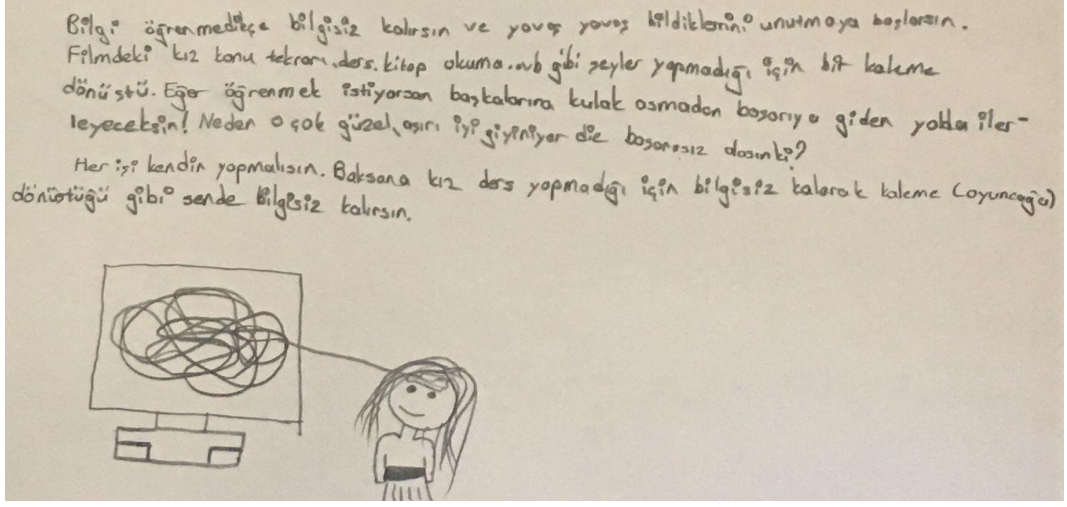 Bilgi öğrenmedikçe bilgisiz kalırsın ve yavaş yavaş bildiklerini unutmaya başlarsın.
Filmdeki kız konu tekrarı.ders.kitap okuma.vb gibi şeyler yapmadığı için bir kaleme
dönüştü. Eğer öğrenmek istiyorsan başkalarına kulak asmadan başarıya giden yolda iler-
leyeceksin! Neden o çok güzel, aşırı iyi giyiniyor die başarısız olasınki?
Her işi kendin yapmalısın. Baksana kız ders yapmadığı için bilgisiz kalarak kaleme (oyuncağa)
dönüştüğü gibi sende Bilgisiz kalırsın.